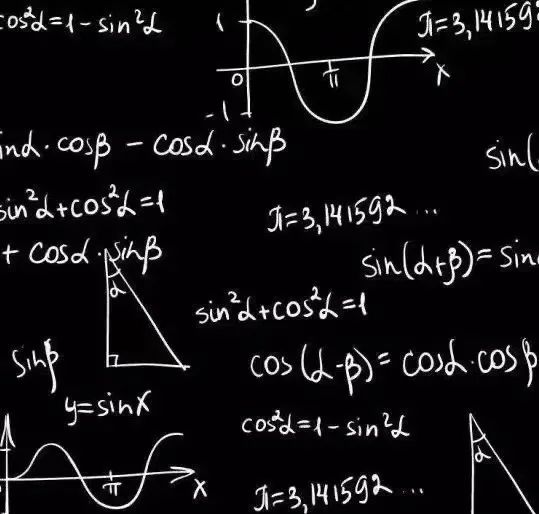 cos²α=1-sin²α
1
π=3,14159
0
π
x
-1
sinα·cosβ - cosα·sinβ
sin(
sin²α+cos²α=1
π=3,141592...
+ cosα·sinβ
sin(α+β)=sin
α
sin²α+cos²α=1
sinβ
cos(α-β)=cosα·cosβ
y=sinx
cos²α=1-sin²α
α
π
x
π=3,141592...